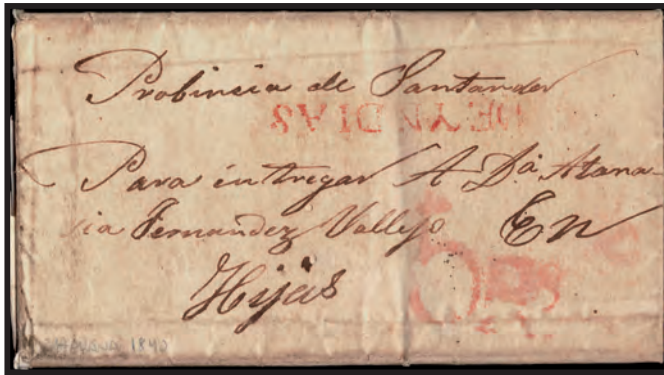 Probincia de Santander
DE YNDIAS
Para entregar A D.ª Atana-
sia Fernandez Vallejo En
Hijas
HAVANA 1840